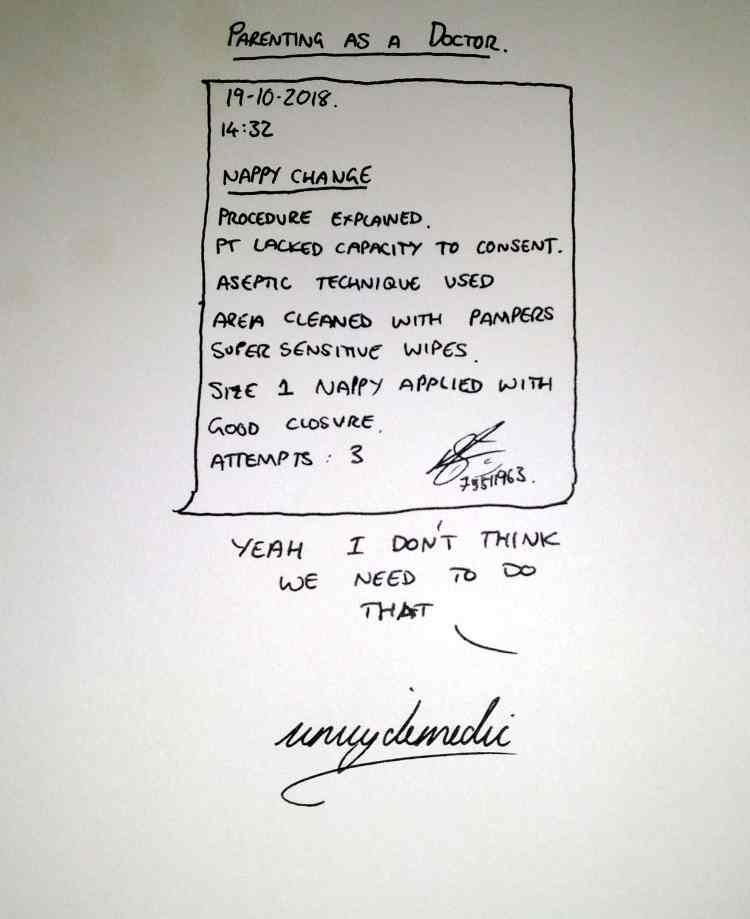 PARENTING AS A DOCTOR.
19-10-2018.
14:32
NAPPY CHANGE
PROCEDURE EXPLAINED.
PT LACKED CAPACITY TO CONSENT.
ASEPTIC TECHNIQUE USED
AREA CLEANED WITH PAMPERS
SUPER SENSITIVE WIPES.
SIZE 1 NAPPY APPLIED WITH
GOOD CLOSURE.
ATTEMPTS: 3
YEAH I DON'T THINK
WE NEED TO DO
THAT